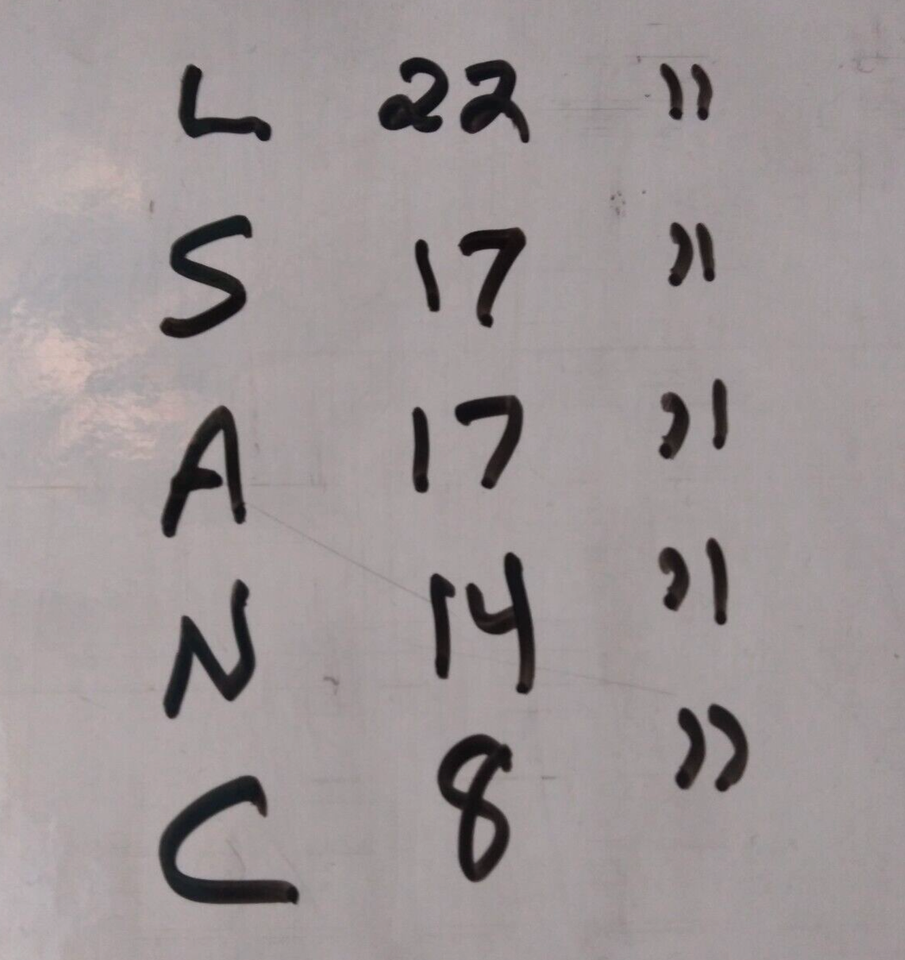 L 22 "
S 17 "
A 17 "
N 14 "
C 8 "